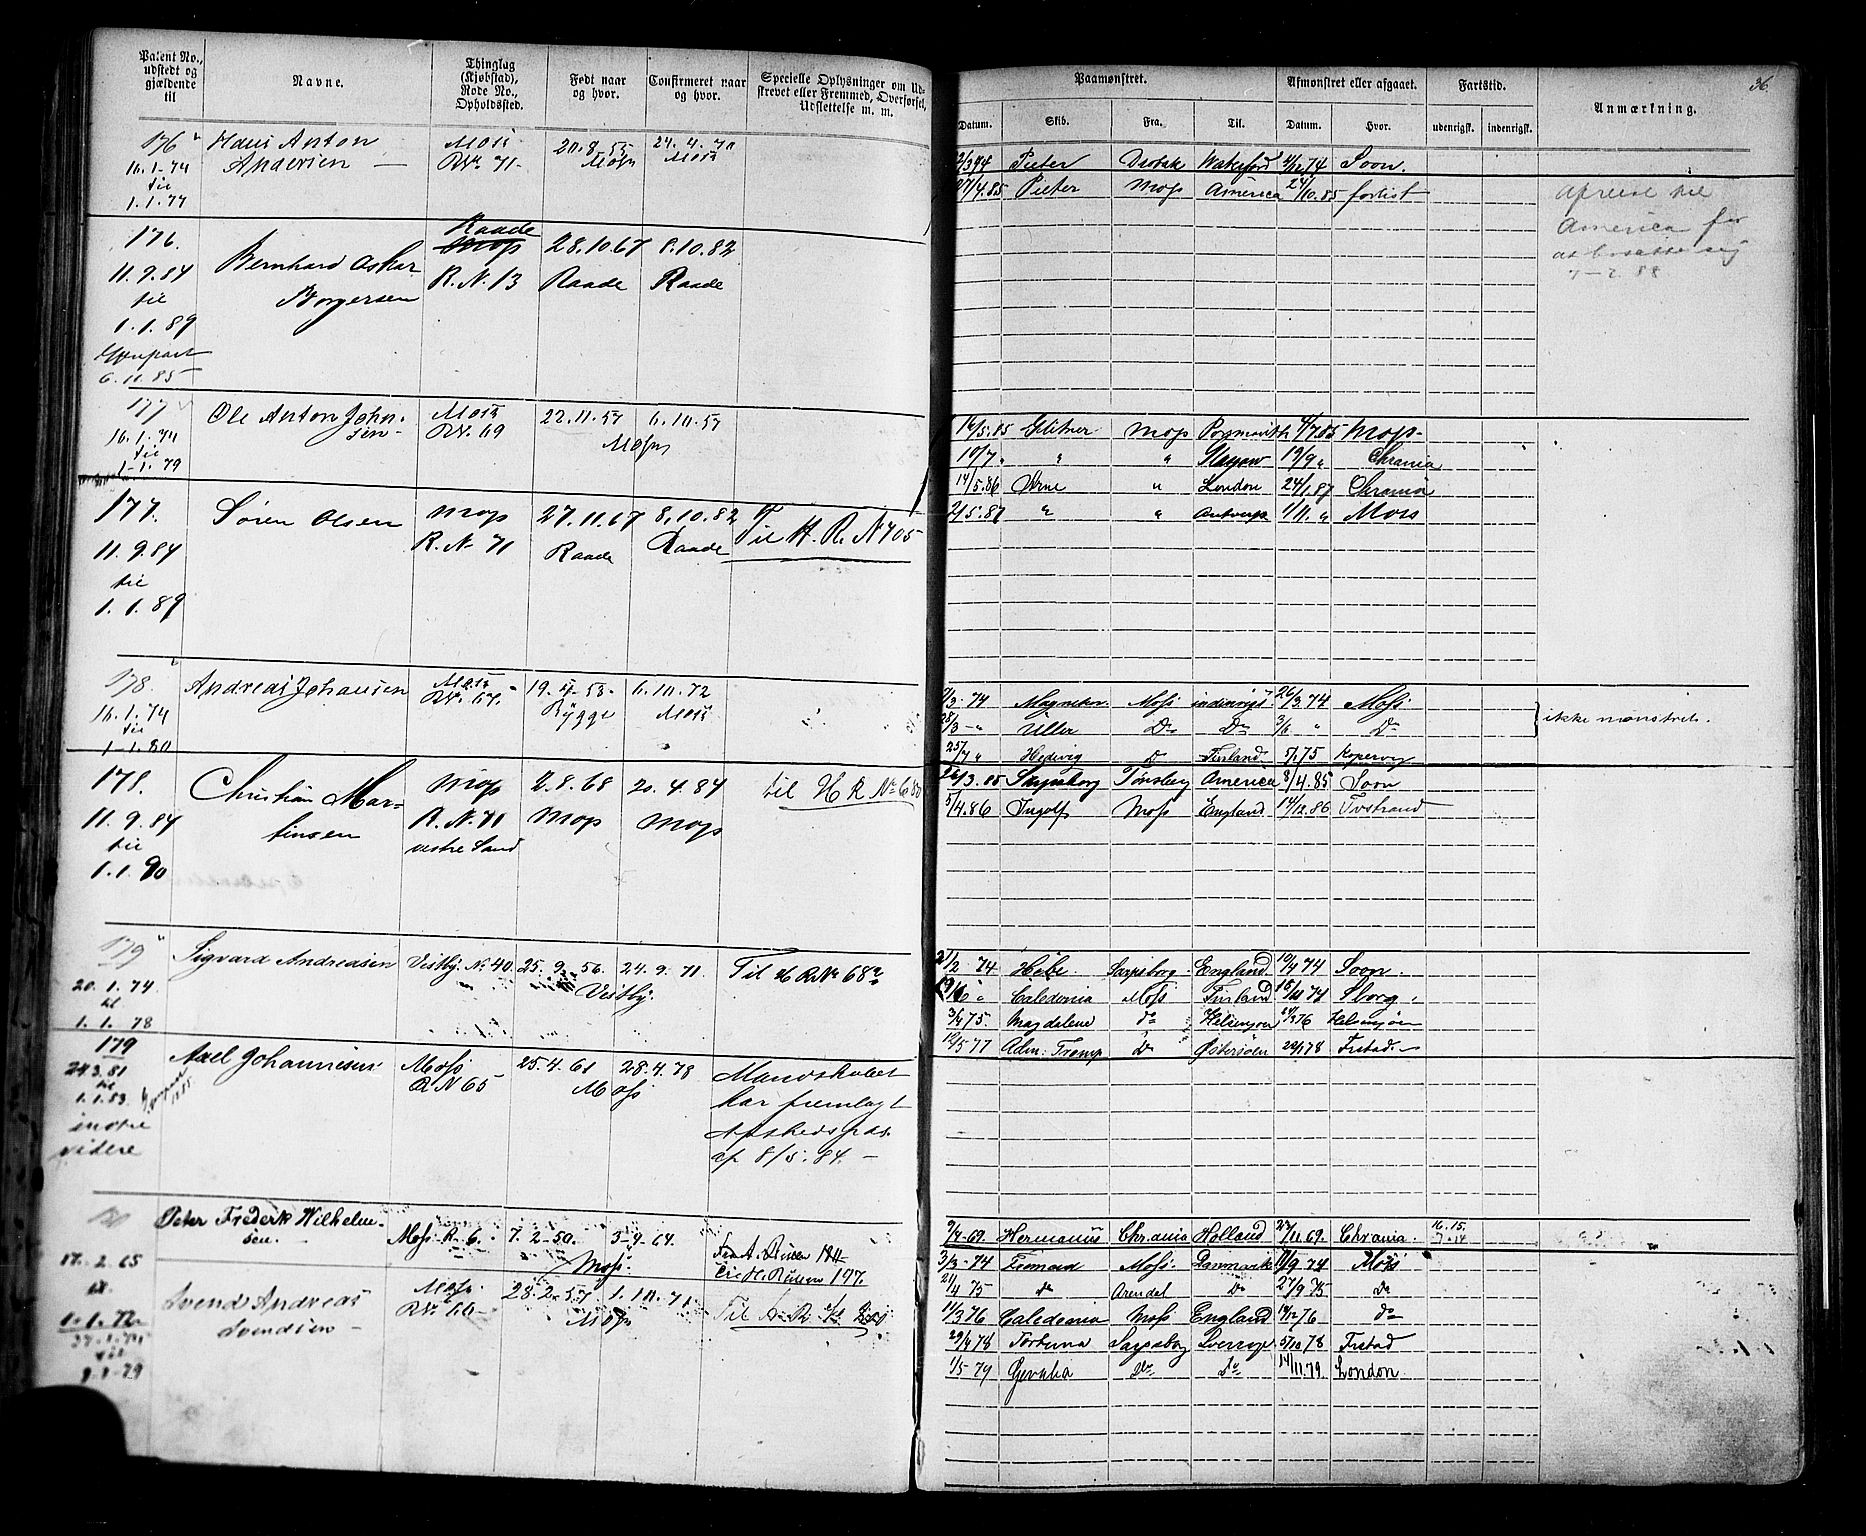 Patent No.,
udstedt og
gjældende
til
Navne.
Thinglag
(Kjøbstad),
Rode No.,
Opholdssted.
Født naar
og hvor.
Confirmeret naar
og hvor.
Specielle Oplysninger om Ud-
skrevet eller Fremmed, Overførsel,
Udslettelse m. m.
176
16.1.74
til
1.1.77
Hans Anton
Andersen
Moss
RN. 71
20.8.55
Moss
24.4.70
Moss
176.
11.9.84
til
1.1.89
6.11.85
Bernhard Oskar
Borgersen
Raade
Moss
R.N.13
28.10.67
Raade
8.10.82
Raade
177
16.1.74
til
1-1.79
Ole Anton John-
sen
Moss
RN. 69
22.11.57
6.10.57
Moss
177.
11.9.84
til
1.1.89
Søren Olsen
Moss
R.N. 71
27.11.67
Raade
8.10.82
Raade
Til H.R.N 705
178.
16.1.74
til
1-1.80
Andreas Johansen
Moss
RN. 67.
19. 4. 53.
Rygge
6.10.72
Moss
178.
11.9.84
til
1.1.90
Christian Mar-
tinsen
Moss
R.N.71
vestre Sand
2.8.68
Moss
20.4.84
Moss
til H R No 680
179
20.1.74
til
1.1.78
Sigvard Andreasen
Vestby. N. 40.
25.9.56.
Vestby.
24.9.71.
Til H RN 682
179
24.3.81
til
1.1.83.
indtil
videre
Axel Johannesen
Moss
R.N 65
25.4.61
Moss
28.4.78
Mandskabet
har fremlagt
Afskedspas.
af 8/5.84.
180
17.2.65
til
1.1.72
til
1.1.79
Peter Frederk Wilhelm-
sen.
Moss R. 6.
7.2.50.
Moss.
3-9.64.
Svend Andreas
Svendsen
Moss
28.2.57
Moss
1.10.71
Til A. R. N
36
Paamønstret.
Afmønstret eller afgaaet.
Fartstid.
Anmærkning.
Datum.
Skib.
Fra.
Til.
Datum.
Hvor.
udenrigsk.
indenrigsk.
Pieter
Soon.
27/4.85 Pieter Moss America 24/10.85 forlist
Afreist til
America for
at bosætte sig
7-2.88
16/5.85 Glitner Moss Moss
10/7 " " " Glasgow 19/9 " Chrania
14/5.86 Arne " London 24/1.87 Chrania
2/5.87 " " Antverp 1/11. " Moss
7/3-74 Moss indenrigs 26/3.74 Moss
28/3 - " Uller Do Do 3/6 " Do
ikke mønstret.
25/7 " Hedvig Do Finland 5/1 75 Kopervig
26/3.85 Sarpsborg Tønsberg America 8/4.85 Soon
5/4.86 Ingolf Moss England 14/12.86 Tvstrand
21/2 74 Hebe Sarpsborg England 10/4 74 Soon.
19/6 " Caledonia Moss Finland 15/11 74 Sborg.
3/4 75. Magdalene do Helsingør 76 Helsingøer
12/5 77 Adm: Tromp Do Østersøen 22/1 78 Frstad.
9/4 69. Hermanus Chrania Holland 27/11 69. Chrania. 16.15.
3/3-74 Moss. Danmark 11/9 74 Moss
21/4 75 do Arendal Do 27/9 75 Do
11/3 76 Caledonia Moss England 14/12 76 do
29/4 78 Fortuna Sarpsborg 5/10 78 Frstad
1/5-79 Gevalia Do Do 14/11.79 London.